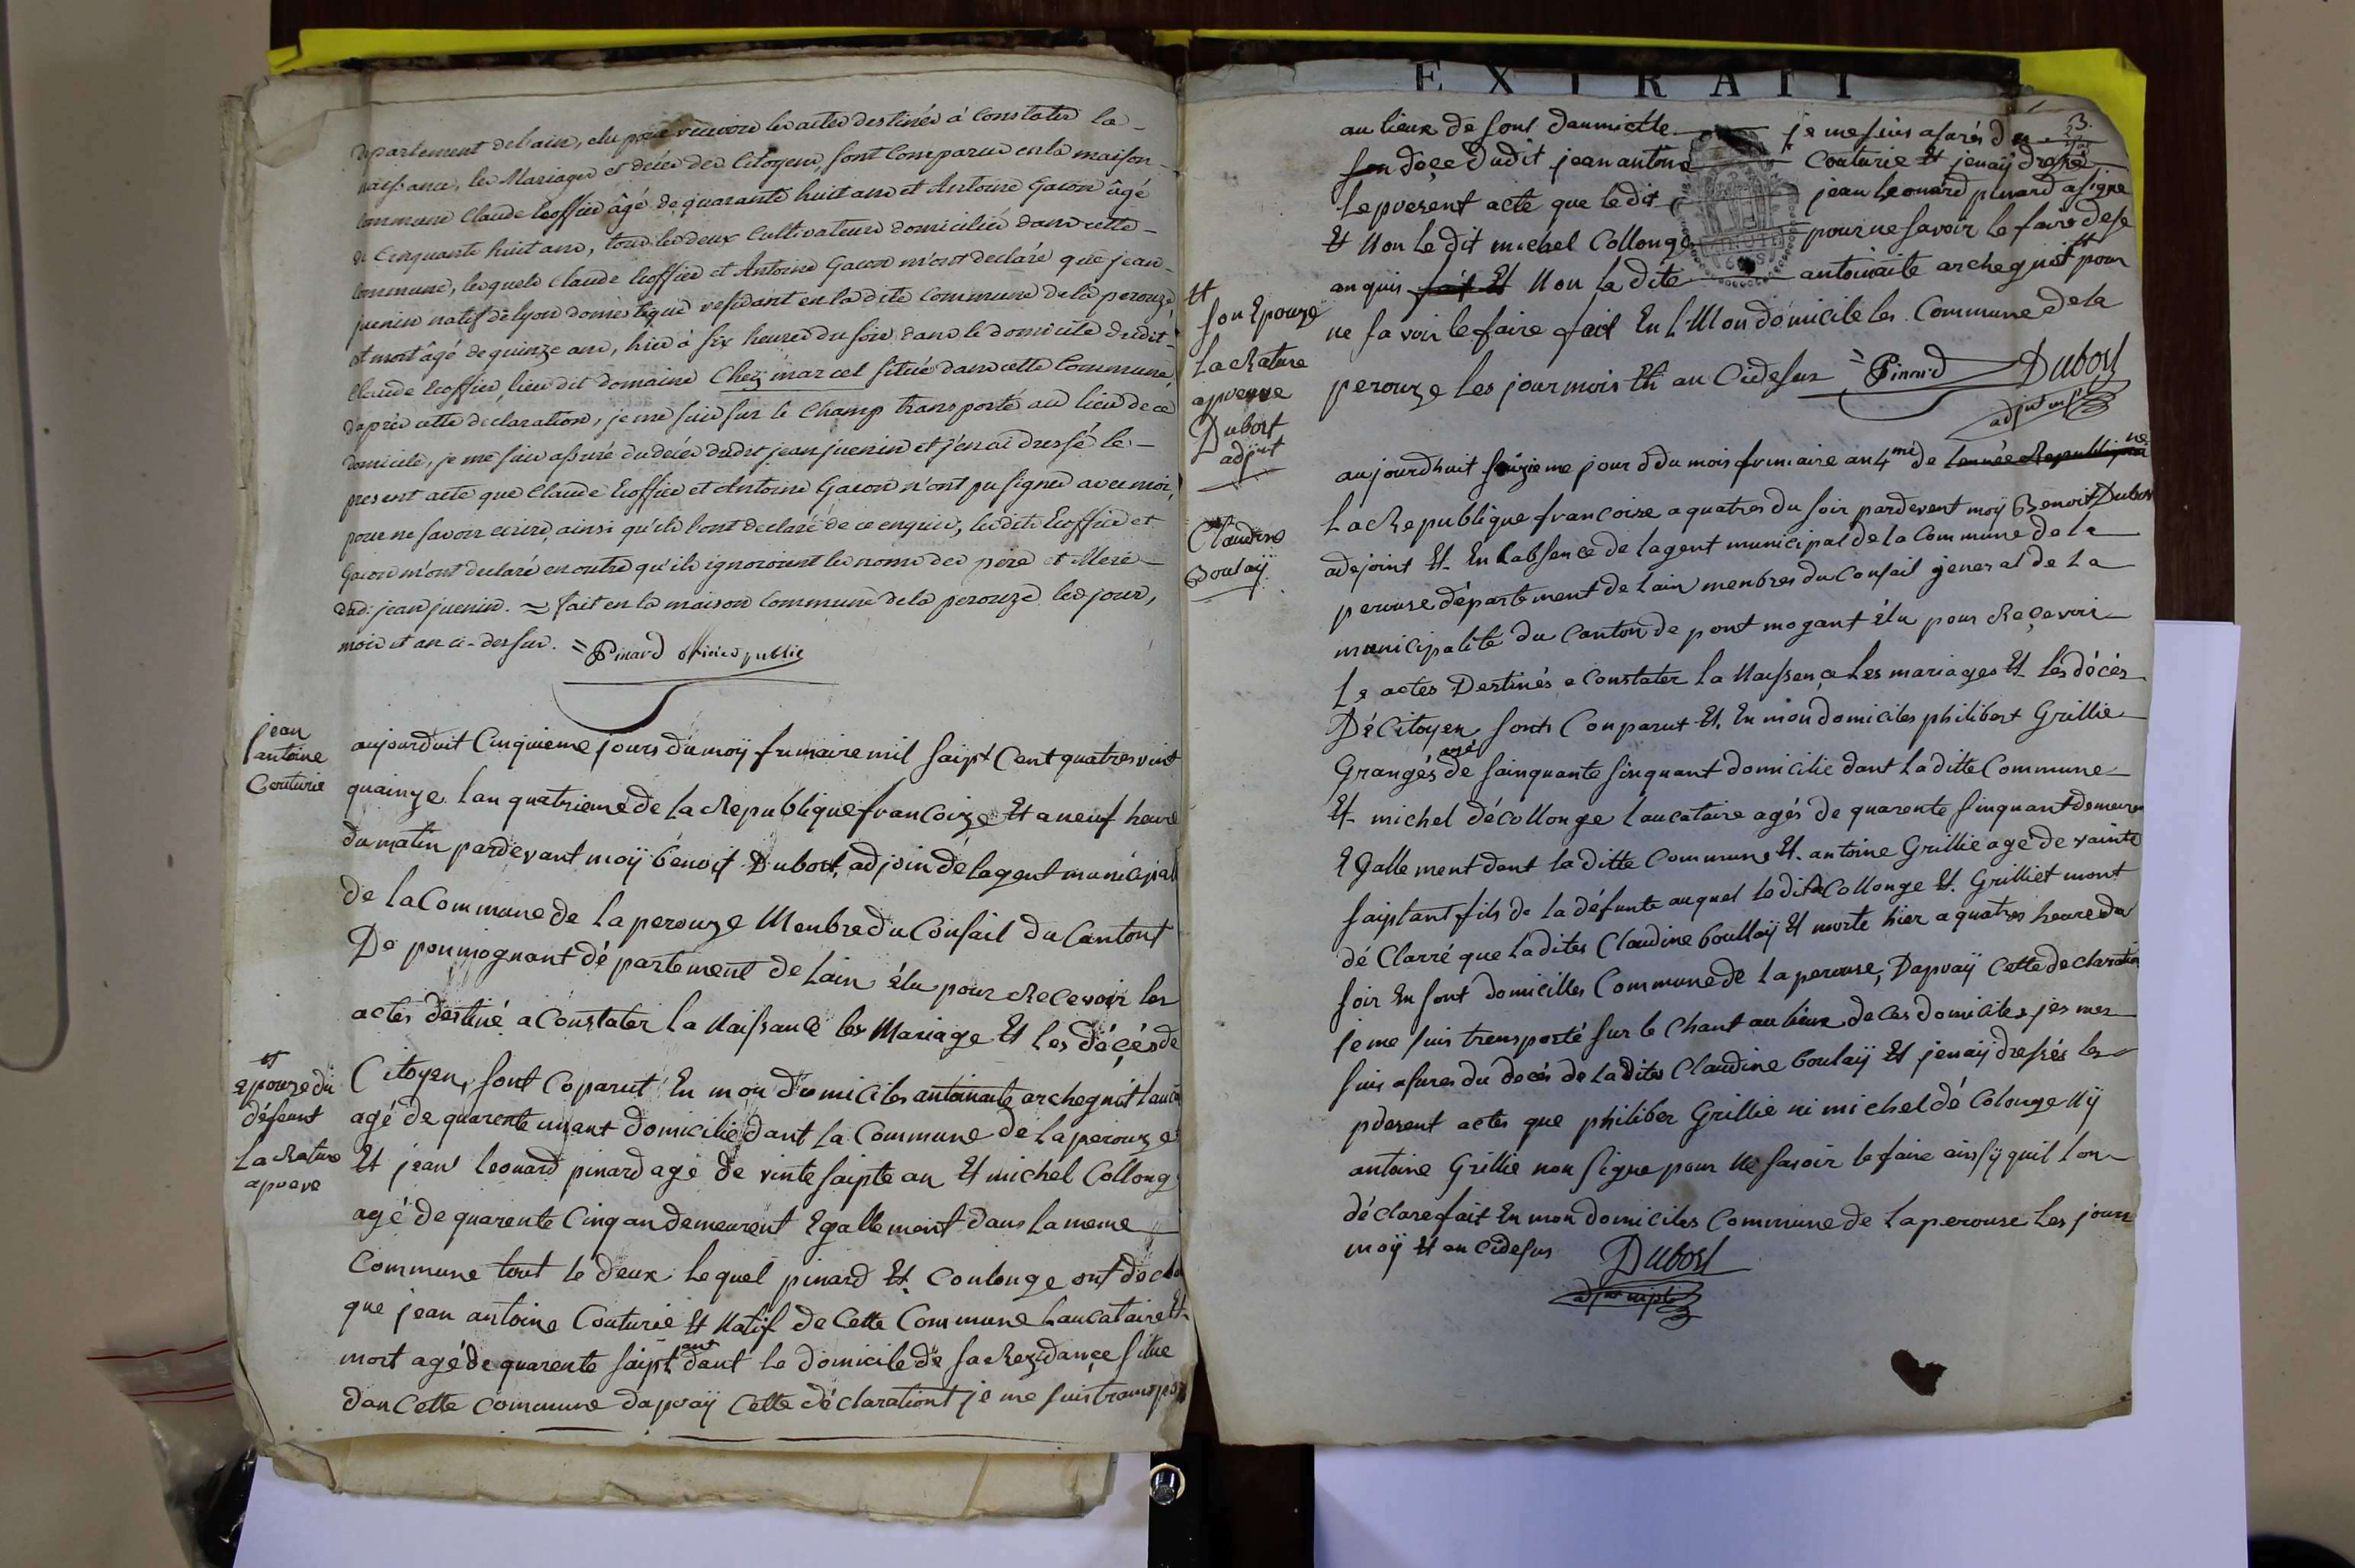 departement de l'ain, elu pour recevoir les actes destinés à Constater la
naissance, les Mariages et décès des Citoyens, sont Comparus en la maison
commune Claude Ecoffier âgé de quarante huit ans et Antoine Gacon âgé
de Cinquante huit ans, tous les deux Cultivateurs domiciliés dans cette
Commune, lesquels Claude Ecoffier et Antoine Gacon m'ont declaré que jean
juenin natif de lyon domestique residant en la dite Commune de la perouze,
est mort âgé de quinze ans, hier à six heures du soir dans le domicile dudit
Claude Ecoffier, lieu dit domaine Chez marcel situé dans cette Commune
d'après cette declaration, je me suis sur le Champ transporté au lieu de ce
domicile, je me suis assuré du décès dudit jean juenin et j'en ai dressé le
present acte que Claude Ecoffier et Antoine Gacon n'ont pu signer avec moi,
pour ne savoir ecrire, ainsi qu'ils l'ont declaré de ce enquis, lesdits Ecoffier et
Gacon m'ont declaré en outre qu'ils ignoroient les noms des pere et Mere
dud. jean juenin. = fait en la maison Commune de la perouze les jour,
mois et an ci-dessus. = Pinard officier public
jean
antoine
Couturie
aujourduit Cinquieme jours du moÿ frumaire mil saipt Cent quatres vint
quainze lan quatrieme de la Republique francoize Et a neuf heure
du matin pardevant moÿ benoit Dubost, adjoin de lagent municipal
de la Commune de la perouze Menbre du Consail du Cantont
De ponmognant dé partement de Lain élu pour Recevoir les
actes destiné a Constater la Naissance les Mariage Et les décés de
Citoyen, sont Coparut En mon domiciles antoinaite archegniot laucat
agé de quarente unant domicilié dant la Commune de la perouze
Et jean leonard pinard age de vinte saipte an Et michel Collonge
agé de quarente Cinq an demeurent Egallement dans la meme
Commune tout le deux lequel pinard Et Coulonge ont declare
que jean antoine Couturie Et Natif de Cette Commune Laucataire Et
mort agé de quarente saipt ant dant le domicile de sa Rezidance situe
dan Cette Commune dapraÿ Cette déclarationt je me suis transporte
et
epouze du
défeunt
la Rature
aprove
EXTRAIT
3.
au lieux de sont daumicile je me suis asurés du
son deçe dudit jean antone Couturie Et jenaÿ dressé
le present acte que le dit jean leonard pinard a signe
Et Non le dit michel Collonge pour ne savoir le faire dese
anquis fait Et Non la dite antoinaite archegniot pour
ne sa voir le faire fait En L Mon domicile les Commune de la
perouze Les jour mois Et an Cidesus = Pinard Dubost
adjoint mpl
Et
son Epouze
la Rature
aprouve
Dubost
adjoint
Claudine
Boulaÿ
aujourdhuit seizieme jour d du mois frumaire an 4me de lannée Republiquai ne
La Republique francoise a quatres du soir pardevent moÿ Benoit Dubost
adejoint Et En Labsence de lagent municipal de la Commune de la
perouse département de Lain menbres du Consail general de La
municipalité du Canton de pont mogant élu pour Reçevoir
Le actes Destinés a Constater la Naissence Les mariages Et les décès
Dé Citoyen sonts Conparut Et En mon domiciles philibert Grillie
Grangés agé de sainquante sinquant domicilie dant La ditte Commune
Et michel décollonge laucataire agés de quarente sinquant demeuren
Egallement dant la ditte Commune Et antoine Grillie agé de vainte
saiptant fils de la défunte auquel le dit de Collonge Et Grilliet mont
dé Clarré que Ladites Claudine boullaÿ Et morte hier a quatres heure du
soir En sont domicilles Commune de la perouse, Dapraÿ Cette declaration
je me suis transporté sur le Chant au lieux de Ces domiciles jes mes
suis asures du decés de la dites Claudine boulaÿ Et jenaÿ dressés les
present actes que philiber Grillie ni michel dé Colonge Nÿ
antoine Grillie non signe pour Ne savoir le faire ainsÿ quil lon
déclare fait En mon domiciles Commune de la perouse Les jours
moÿ Et an Cidesus Dubost
adjoint mpl